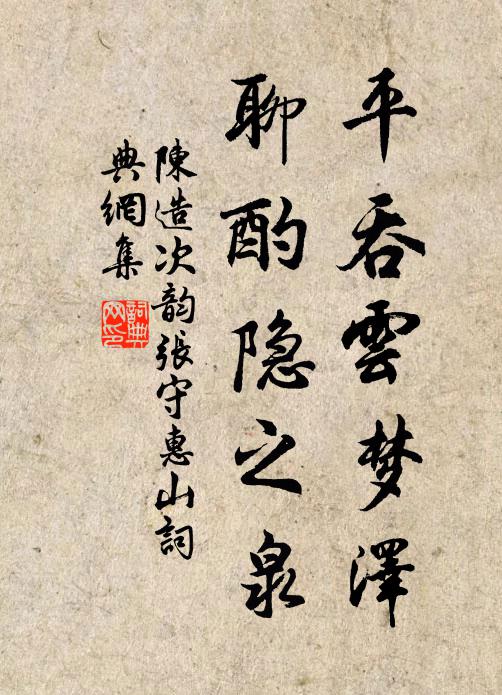 平吞雲梦澤
聊酌隐之泉
陳造次韵張守惠山詞
典網集
詞典
网印